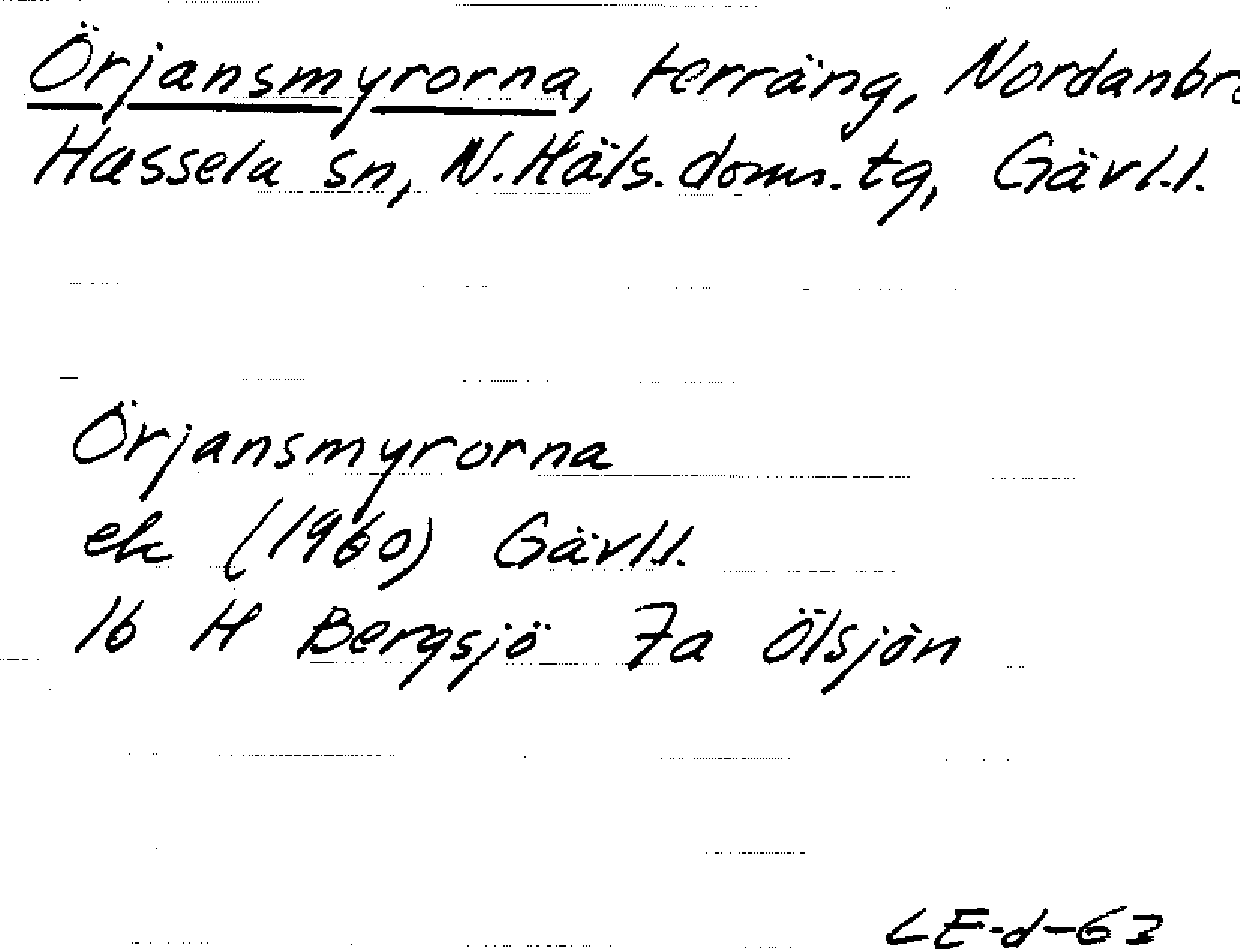 Örjansmyrorna, terräng, Nordanbro
Hassela sn, N.Häls.doms.tg, Gävl.l.
Örjansmyrorna
ek (1960) Gävl.l.
16 H Bergsjö 7a Ölsjön
LE-d-63